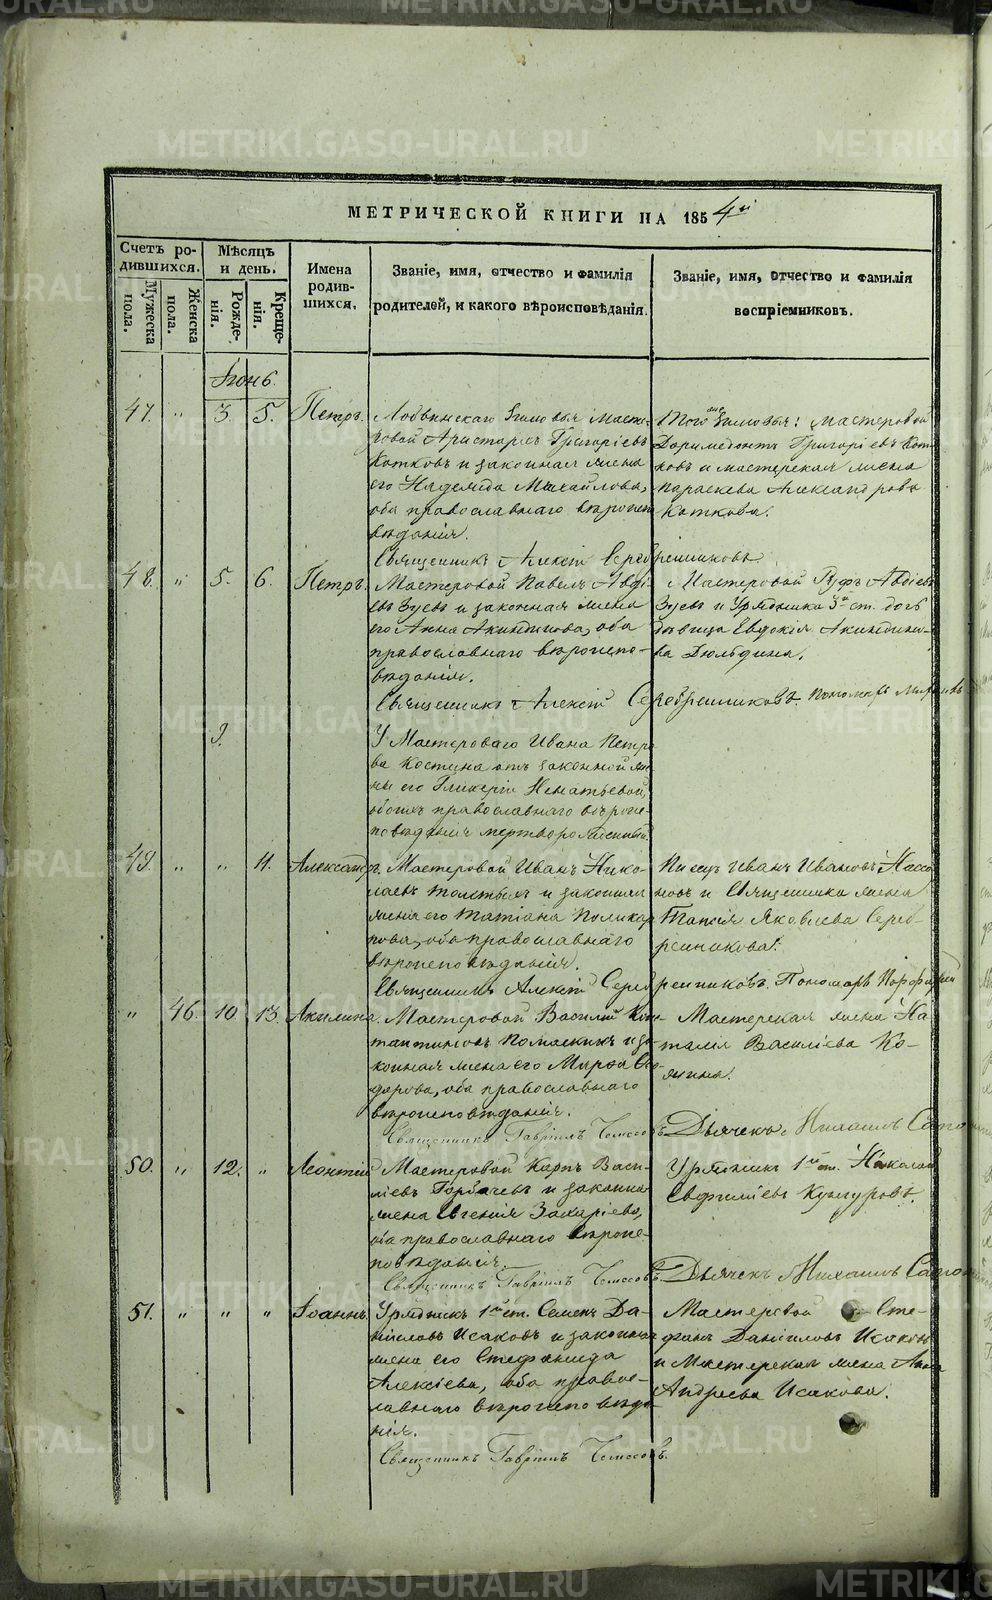 METRIKI.GASO-URAL.RU
МЕТРИЧЕСКОЙ КНИГИ НА 1854й
Счетъ родившихся.
Мѣсяцъ и день.
Имена родившихся.
Званіе, имя, отчество и фамилія родителей, и какого вѣроисповѣданія.
Званіе, имя, отчество и фамилія воспріемниковъ.
Мужеска пола.
Женска пола.
Рожденія.
Крещенія.
Іюнь
47. " 3. 5. Петръ.
Мастеровой Аристархъ Григоріевъ
Котковъ и законная жена
его Надежда Михайлова,
оба православнаго вѣроисповѣданія.
Того же завода: мастеровой
Доримедонтъ Григоріевъ Котковъ и мастерская жена
Параскева Александрова
Коткова.
Священникъ Алексій Серебренниковъ.
48. " 5. 6. Петръ.
Мастеровой Павелъ Авдіевъ
Зуевъ и законная жена
его Анна Акиндинова, оба
православнаго вѣроисповѣданія.
Мастеровой Руфъ Авдіевъ
Зуевъ и Урядника 3й ст. дочь
дѣвица Евдокія Акиндинова
Священникъ Алексій Серебренниковъ. Пономарь
9.
У Мастероваго Ивана Петрова
Костина отъ законной жены
его Гликеріи Игнатьевой,
обоихъ православнаго вѣроисповѣданія мертворожденный.
49. " " 11. Александръ.
Мастеровой Иванъ Николаевъ
Толстыхъ и законная
жена его Татіана Поликарпова, оба православнаго
вѣроисповѣданія.
Писецъ Иванъ Ивановъ
и Священника жена
Таисія Яковлева Серебренникова.
Священникъ Алексій Серебренниковъ. Пономарь Порфирій
" 46. 10. 13. Акилина.
Мастеровой Василій Константиновъ
и законная жена его Марѳа
оба православнаго
вѣроисповѣданія.
Мастерская жена Наталія Василіева
Священникъ Гавріилъ
Дьячекъ Михаилъ
50. " 12. " Леонтій
Мастеровой Карпъ Василіевъ Горбачевъ и законная
жена Евгенія Захаріева,
оба православнаго вѣроисповѣданія.
Урядникъ 1й ст. Николай
Евфиміевъ Кунгуровъ.
Священникъ Гавріилъ
Дьячекъ Михаилъ
51. " " " Іоаннъ.
Урядникъ 1й ст. Семенъ Даниловъ Исаковъ и законная
жена его Стефанида
Алексіева, оба православнаго вѣроисповѣданія.
Мастеровой Стефанъ Даниловъ Исаковъ
и Мастерская жена Анна
Андреева Исакова.
Священникъ Гавріилъ